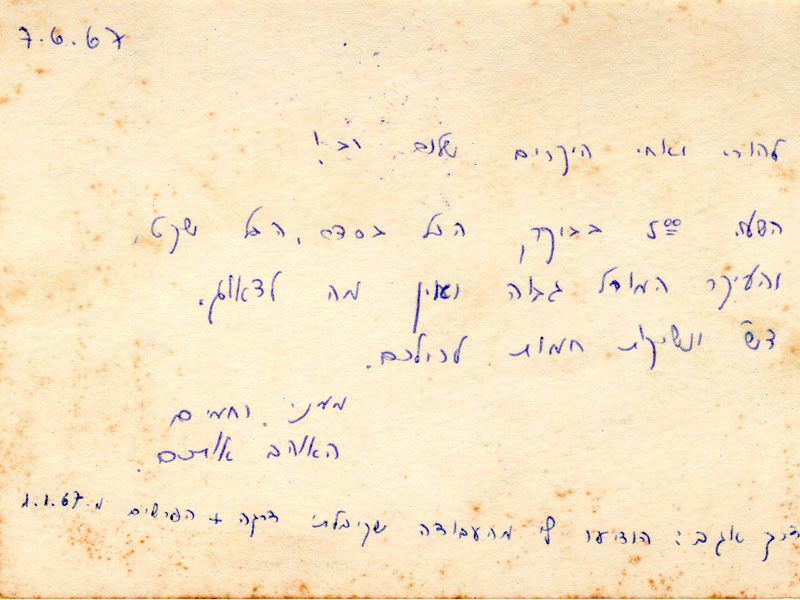 7.6.67
להורי ואחי היקרים שלום רב!
השעה 5⁰⁰ בבוקר, הכל בסדר, הכל שקט,
והעיקר המורל גבוה ואין מה לדאוג.
ד"ש ונשיקות חמות לכולכם.
מעני וחמים
האוהב אתכם.
דרך אגב: הודיעו לי מהעבודה שקיבלתי דרגה + הפרשים מ 1.1.67